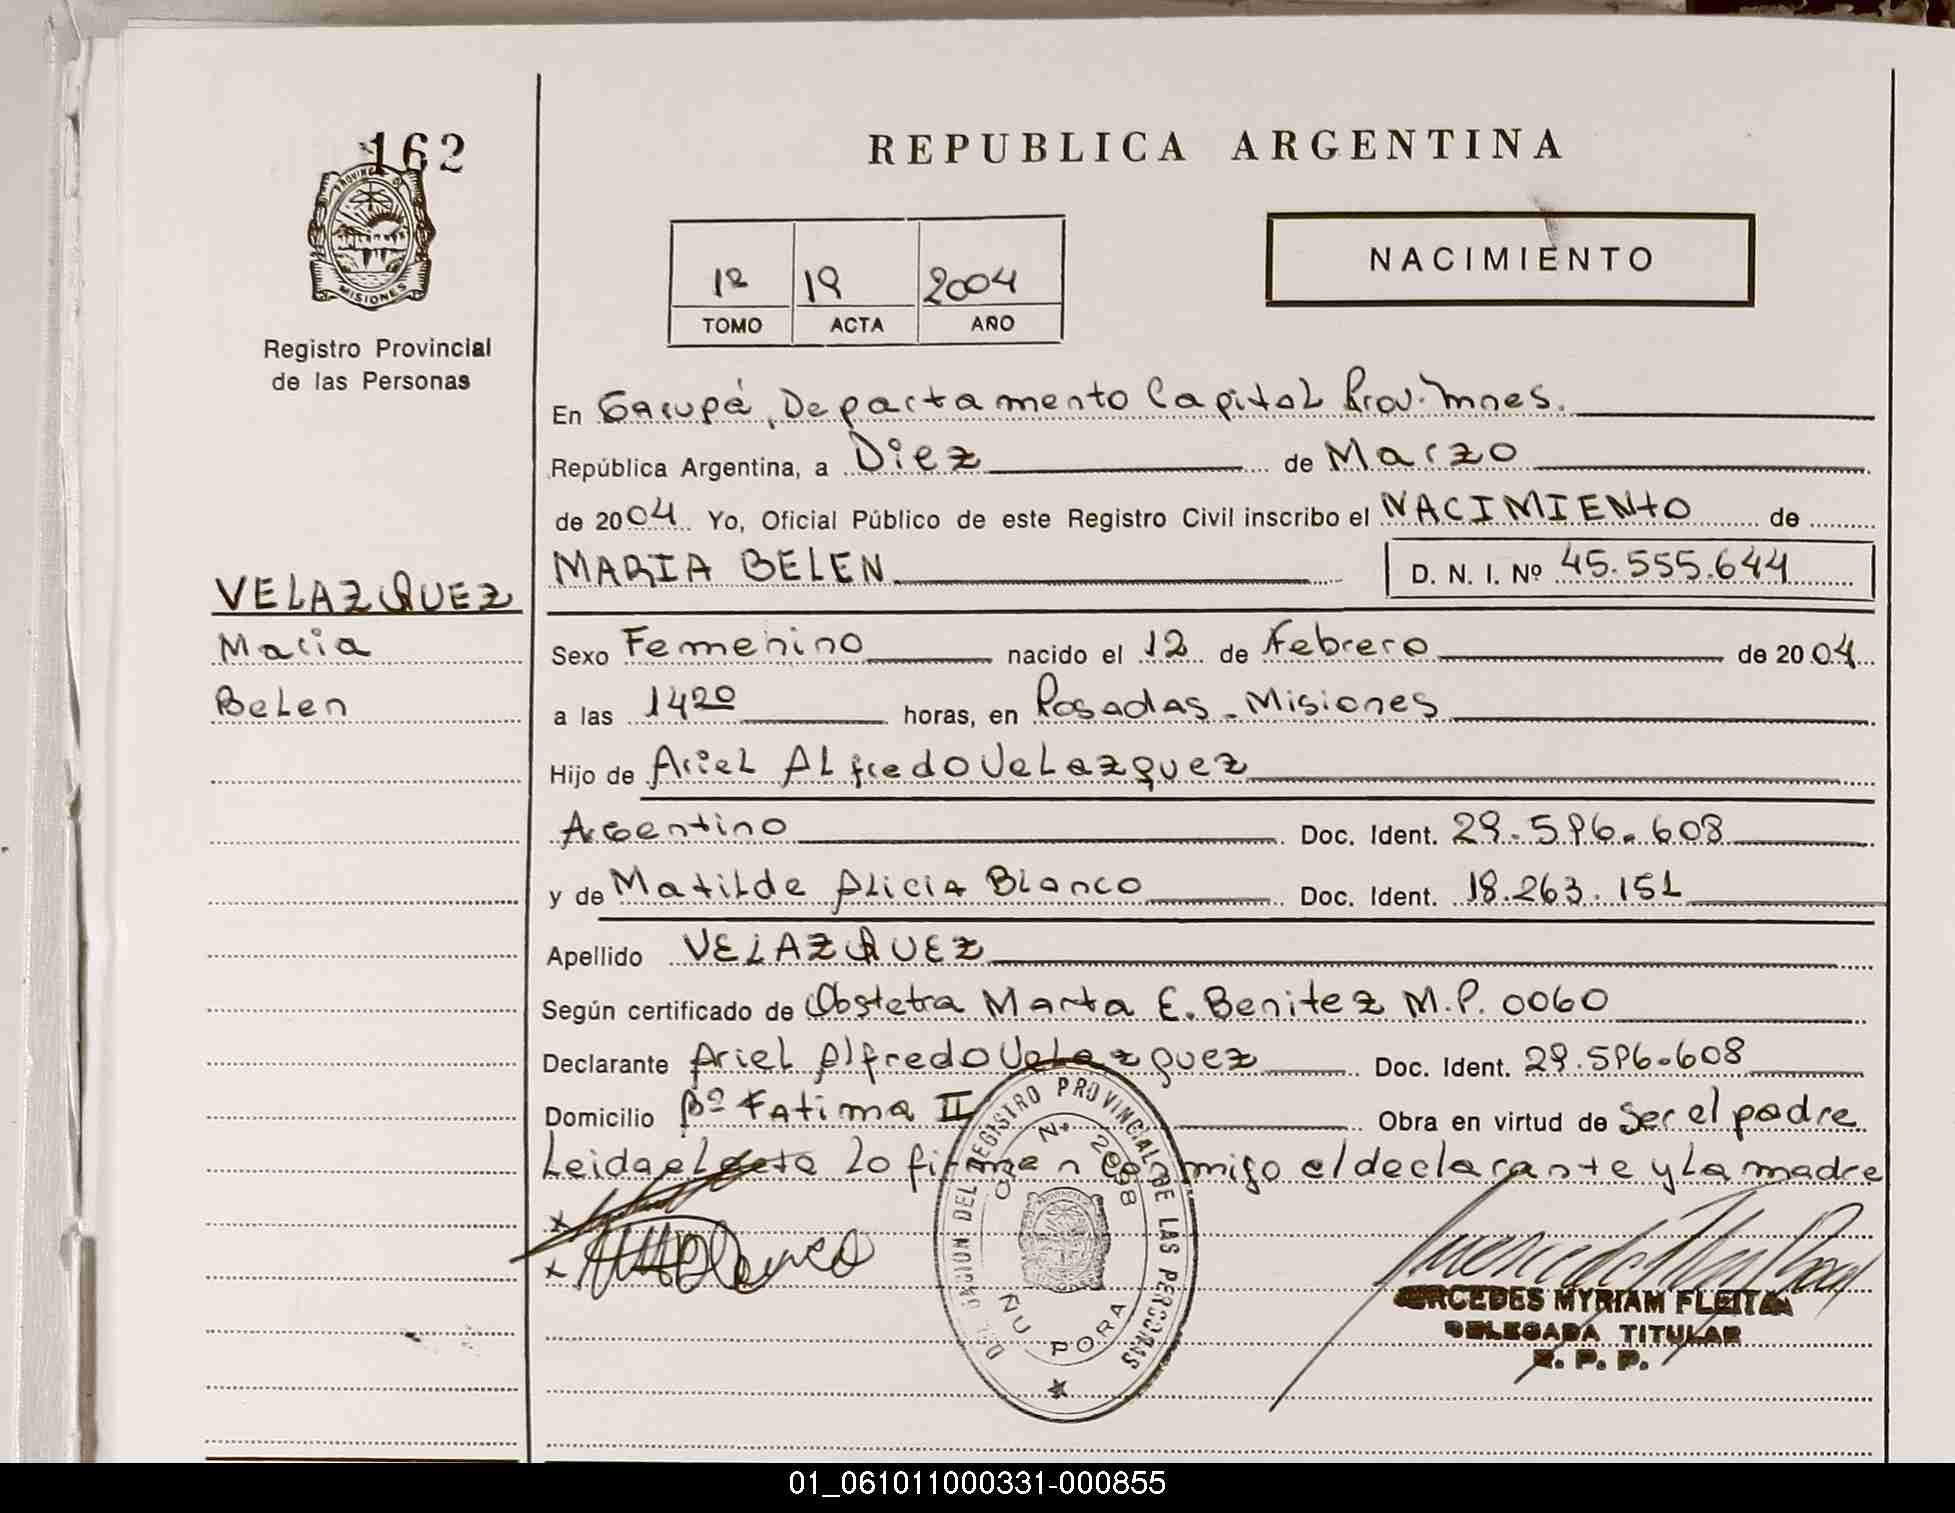 162
PROVINCIA
MISIONES
Registro Provincial
de las Personas
REPUBLICA ARGENTINA
NACIMIENTO
1º 19 2004
TOMO ACTA AÑO
En Garupá, Departamento Capital Prov. Mnes.
República Argentina, a Diez de Marzo
de 2004 Yo, Oficial Público de este Registro Civil inscribo el NACIMIENTO de
MARIA BELEN D. N. I. Nº 45.555.644
VELAZQUEZ
Maria
Belen
Sexo Femenino nacido el 12 de Febrero de 2004
a las 1420 horas, en Posadas - Misiones
Hijo de Ariel Alfredo Velazquez
Argentino Doc. Ident. 29.596.608
y de Matilde Alicia Blanco Doc. Ident. 18.263.151
Apellido VELAZQUEZ
Según certificado de Obstetra Marta E. Benitez M.P. 0060
Declarante Ariel Alfredo Velazquez Doc. Ident. 29.596.608
Domicilio Bº Fatima II Obra en virtud de ser el padre
Leida el acta lo firman conmigo el declarante y la madre
DEL REGISTRO PROVINCIAL DE LAS PERSONAS
Nº 2098
ÑU PORA
MERCEDES MYRIAM FLEITA
DELEGADA TITULAR
R. P. P.
01_061011000331-000855